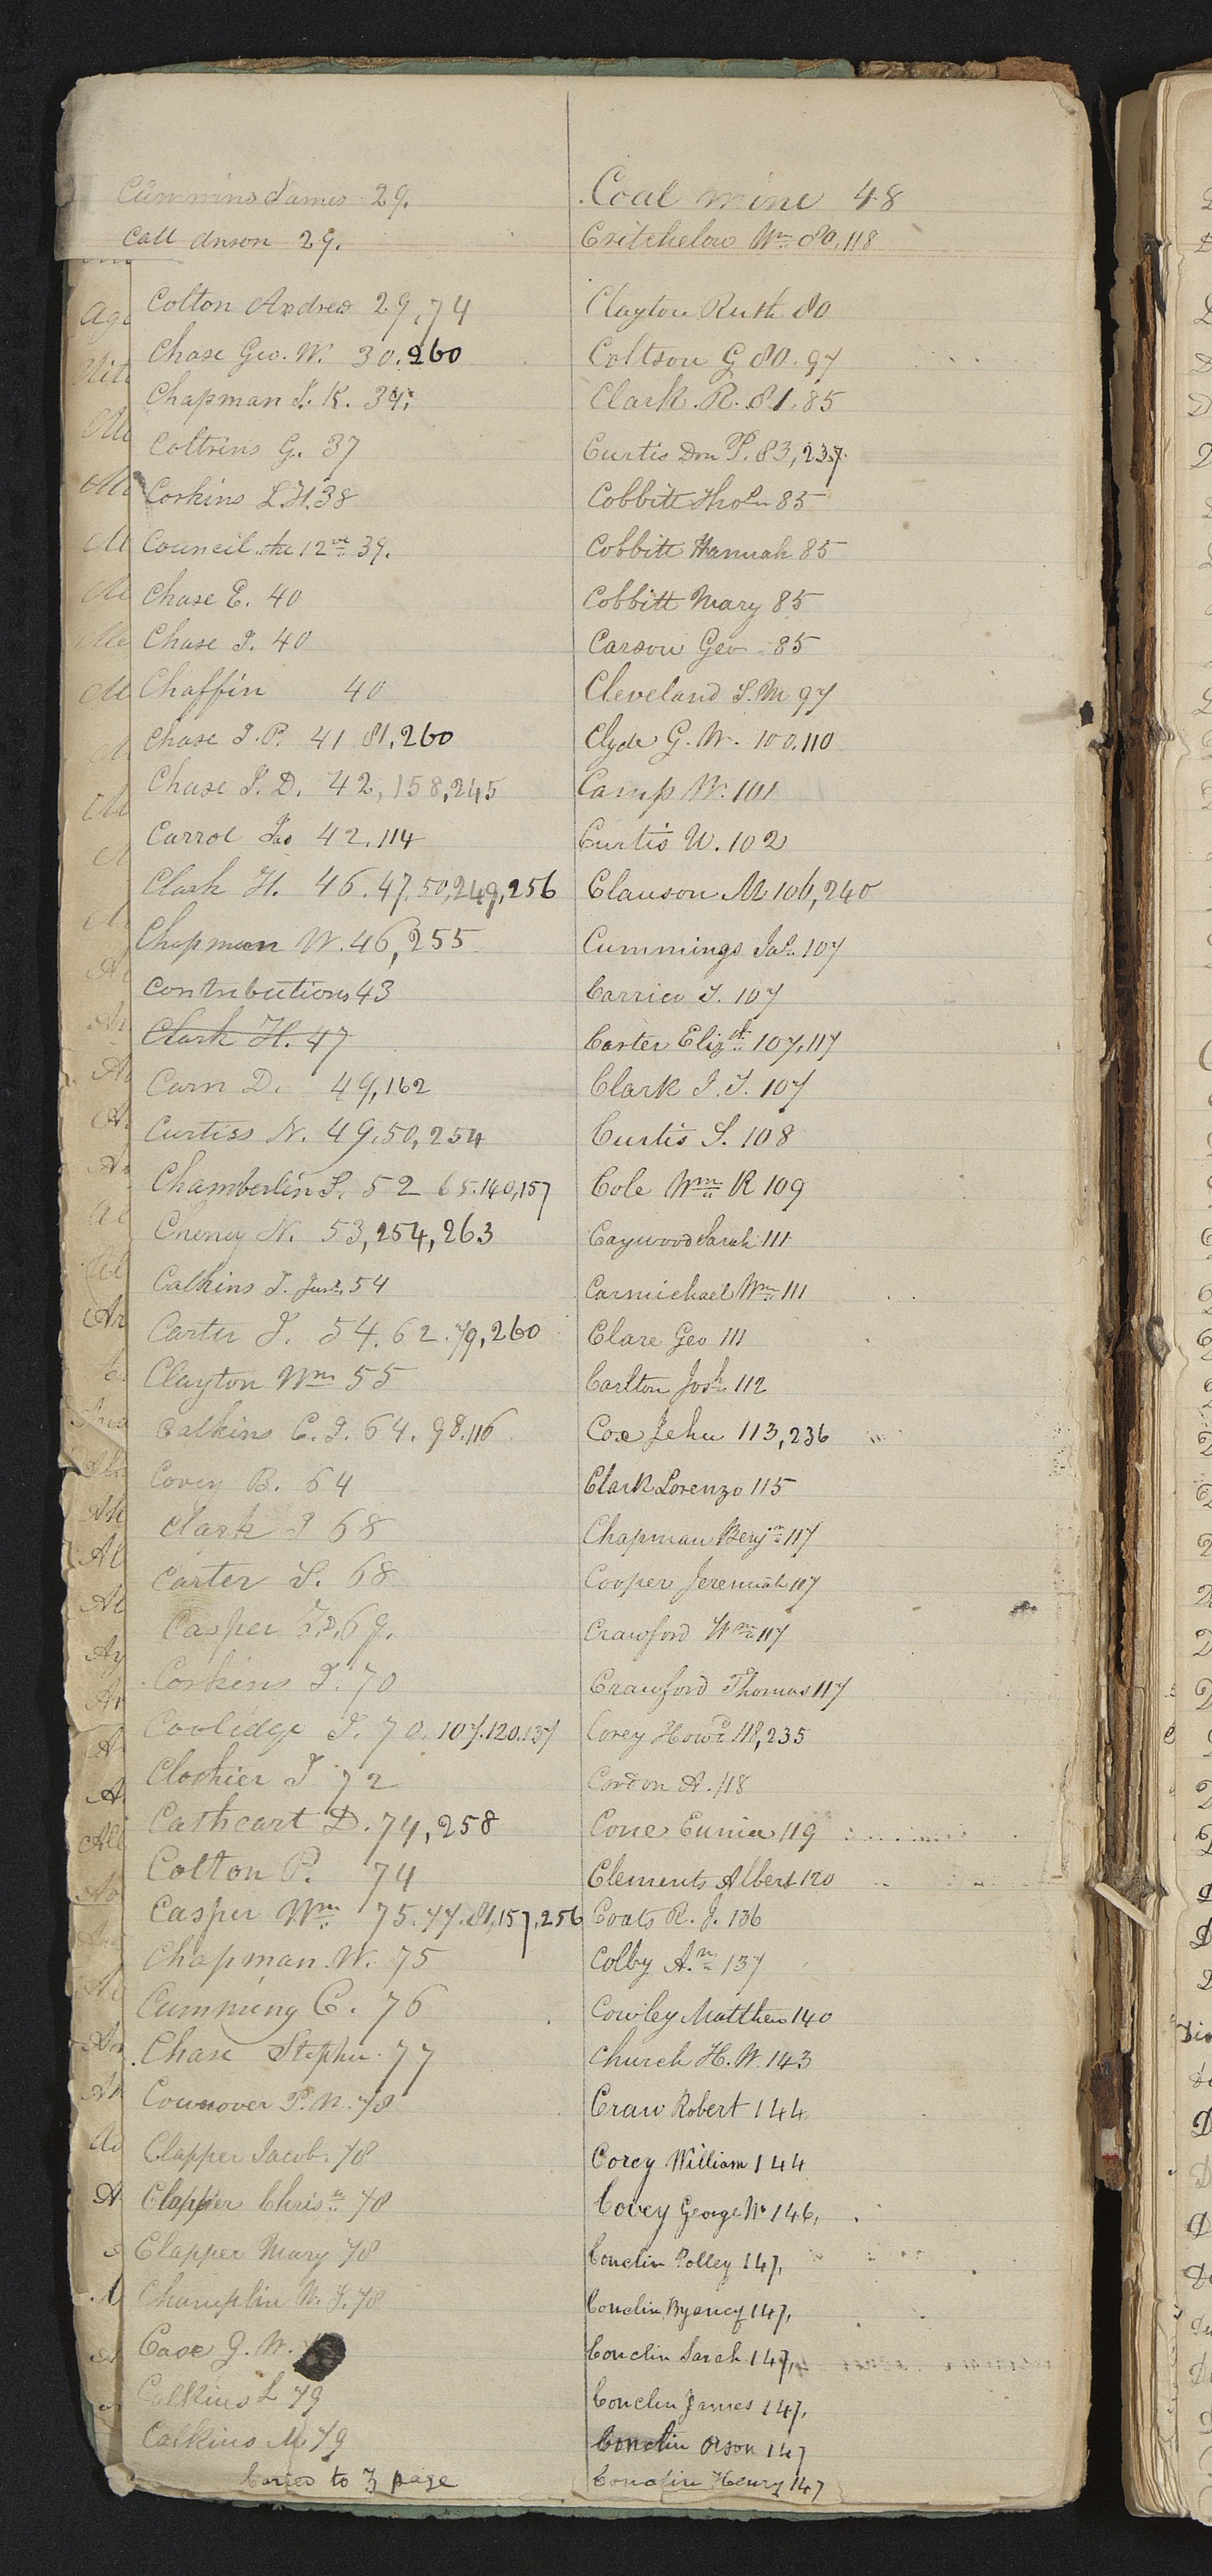 Cummins James 29.
Call Anson 29.
Colton Andrew 29,74
Chase Geo. W. 30.260
Chapman I. K. 34.
Coltrins G. 37
Corkins L.H. 38
Council the 12ve 39.
Chase E. 40
Chase I. 40
Chaffin 40
Chase I. P. 41.81.260
Chase I. D. 42,158,245
Carrol Jas 42.114
Clark H. 46.47.50,249,256
Chapman W. 46,255
Contributions 43
Clark H. 47
Carn D. 49,162
Curtiss N. 49.50,254
Chamberlin S. 52 65.140,157
Cheney N. 53,254,263
Calkins I. Junr. 54
Carter J. 54.62.79,260
Clayton Wm 55
Calkins C. I. 64.98.116
Covey B. 64
Clark I 68
Carter S. 68
Casper 69.
Corkins I. 70
Coolidge J. 70.107.120.137
Clothier I 72
Cathcart D. 74,258
Colton P. 74
Casper Wm 75.77.81,157,256
Chapman W. 75
Cumming C. 76
Chase Stephen 77
Cownover P. N. 78
Clapper Jacob 78
Clapper Chrisn 78
Clapper Mary 78
Champlin W. I. 78
Case G. W.
Calkins L 79
Calkins M 79
Caried to 3 page
Coal mine 48
Critchelow Wm 80,118
Clayton Ruth 80
Coltson G 80.97
Clark. R. 81.85
Curtis Don P. 83,237
Cobbitt Thos 85
Cobbitt Hannah 85
Cobbitt Mary 85
Carson Geo 85
Cleveland S. M 97
Clyde G. W. 100.110
Camp W. 101
Curtis U. 102
Clauson M 106,240
Cummings Jas 107
Carrico T. 107
Carter Elizth 107,117
Clark I. T. 107
Curtis S. 108
Cole Wm R 109
Caywood Sarah 111
Carmichael Wm 111
Clare Geo 111
Carlton Josh 112
Cox Jehu 113,236
Clark Lorenzo 115
Chapman Benjn 117
Cooper Jeremiah 117
Crawford Wm 117
Crawford Thomas 117
Corey Howd 118,235
Cordon A. 118
Cone Eunice 119
Clements Albert 120
Coats R. J. 136
Colby A.m 137
Cowley Matthew 140
Church H. W. 143
Craw Robert 144
Corey William 144
Covey George W 146,
Conclin Polley 147,
Conclin Byancy 147,
Conclin Sarah 147,
Conclin James 147,
Conclin Orson 147
Conclin Henry 147